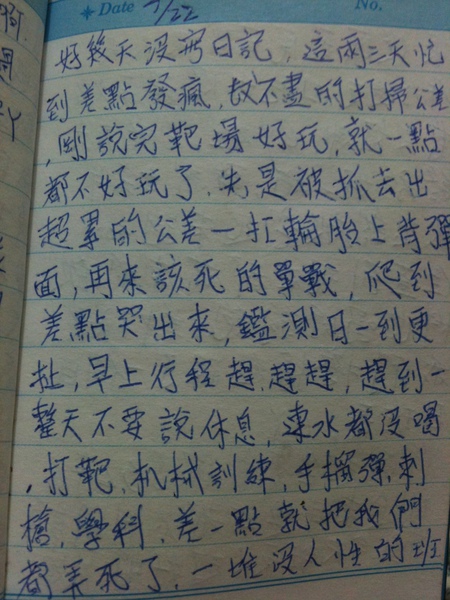 Date 7/22 No.
好幾天沒寫日記,這兩三天忙
到差點發瘋,出不盡的打掃公差
,剛說完靶場好玩,就一點
都不好玩了,先是被抓去出
超累的公差一扛輪胎上背彈
面,再來該死的單戰,爬到
差點哭出來,鑑測日一到更
扯,早上行程趕,趕趕,趕到一
整天不要說休息,連水都沒喝
,打靶,机械訓練,手榴彈,刺
槍,學科,差一點就把我們
都弄死了,一堆沒人性的班